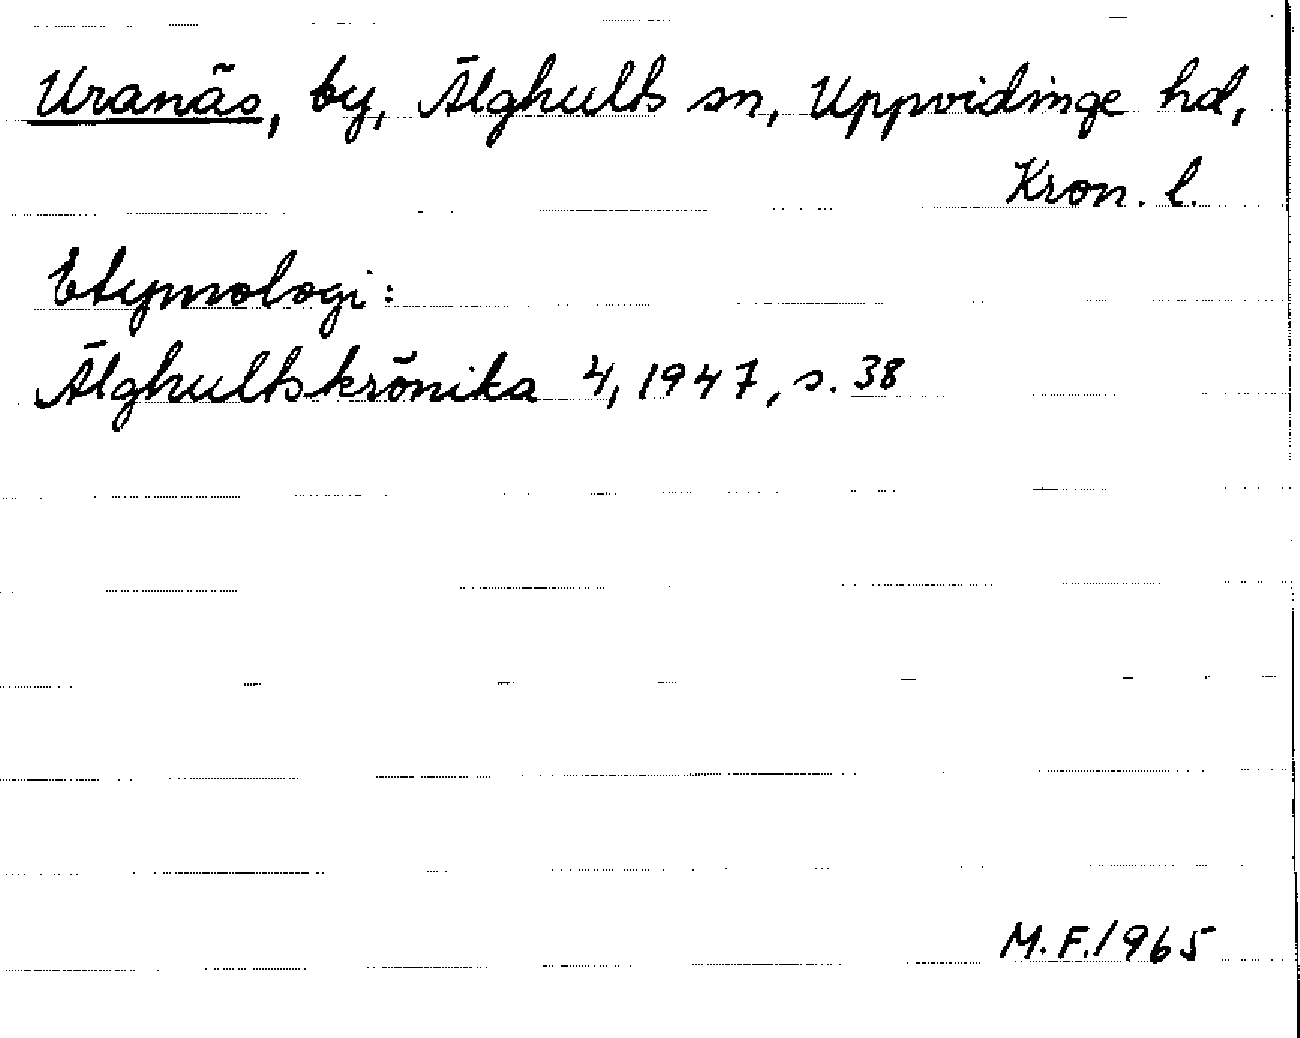 Uranäs, by, Älghults sn, Uppvidinge hd,
Kron. l.
Etymologi:
Älghultskrönika 4, 1947, s. 38
M.F. 1965